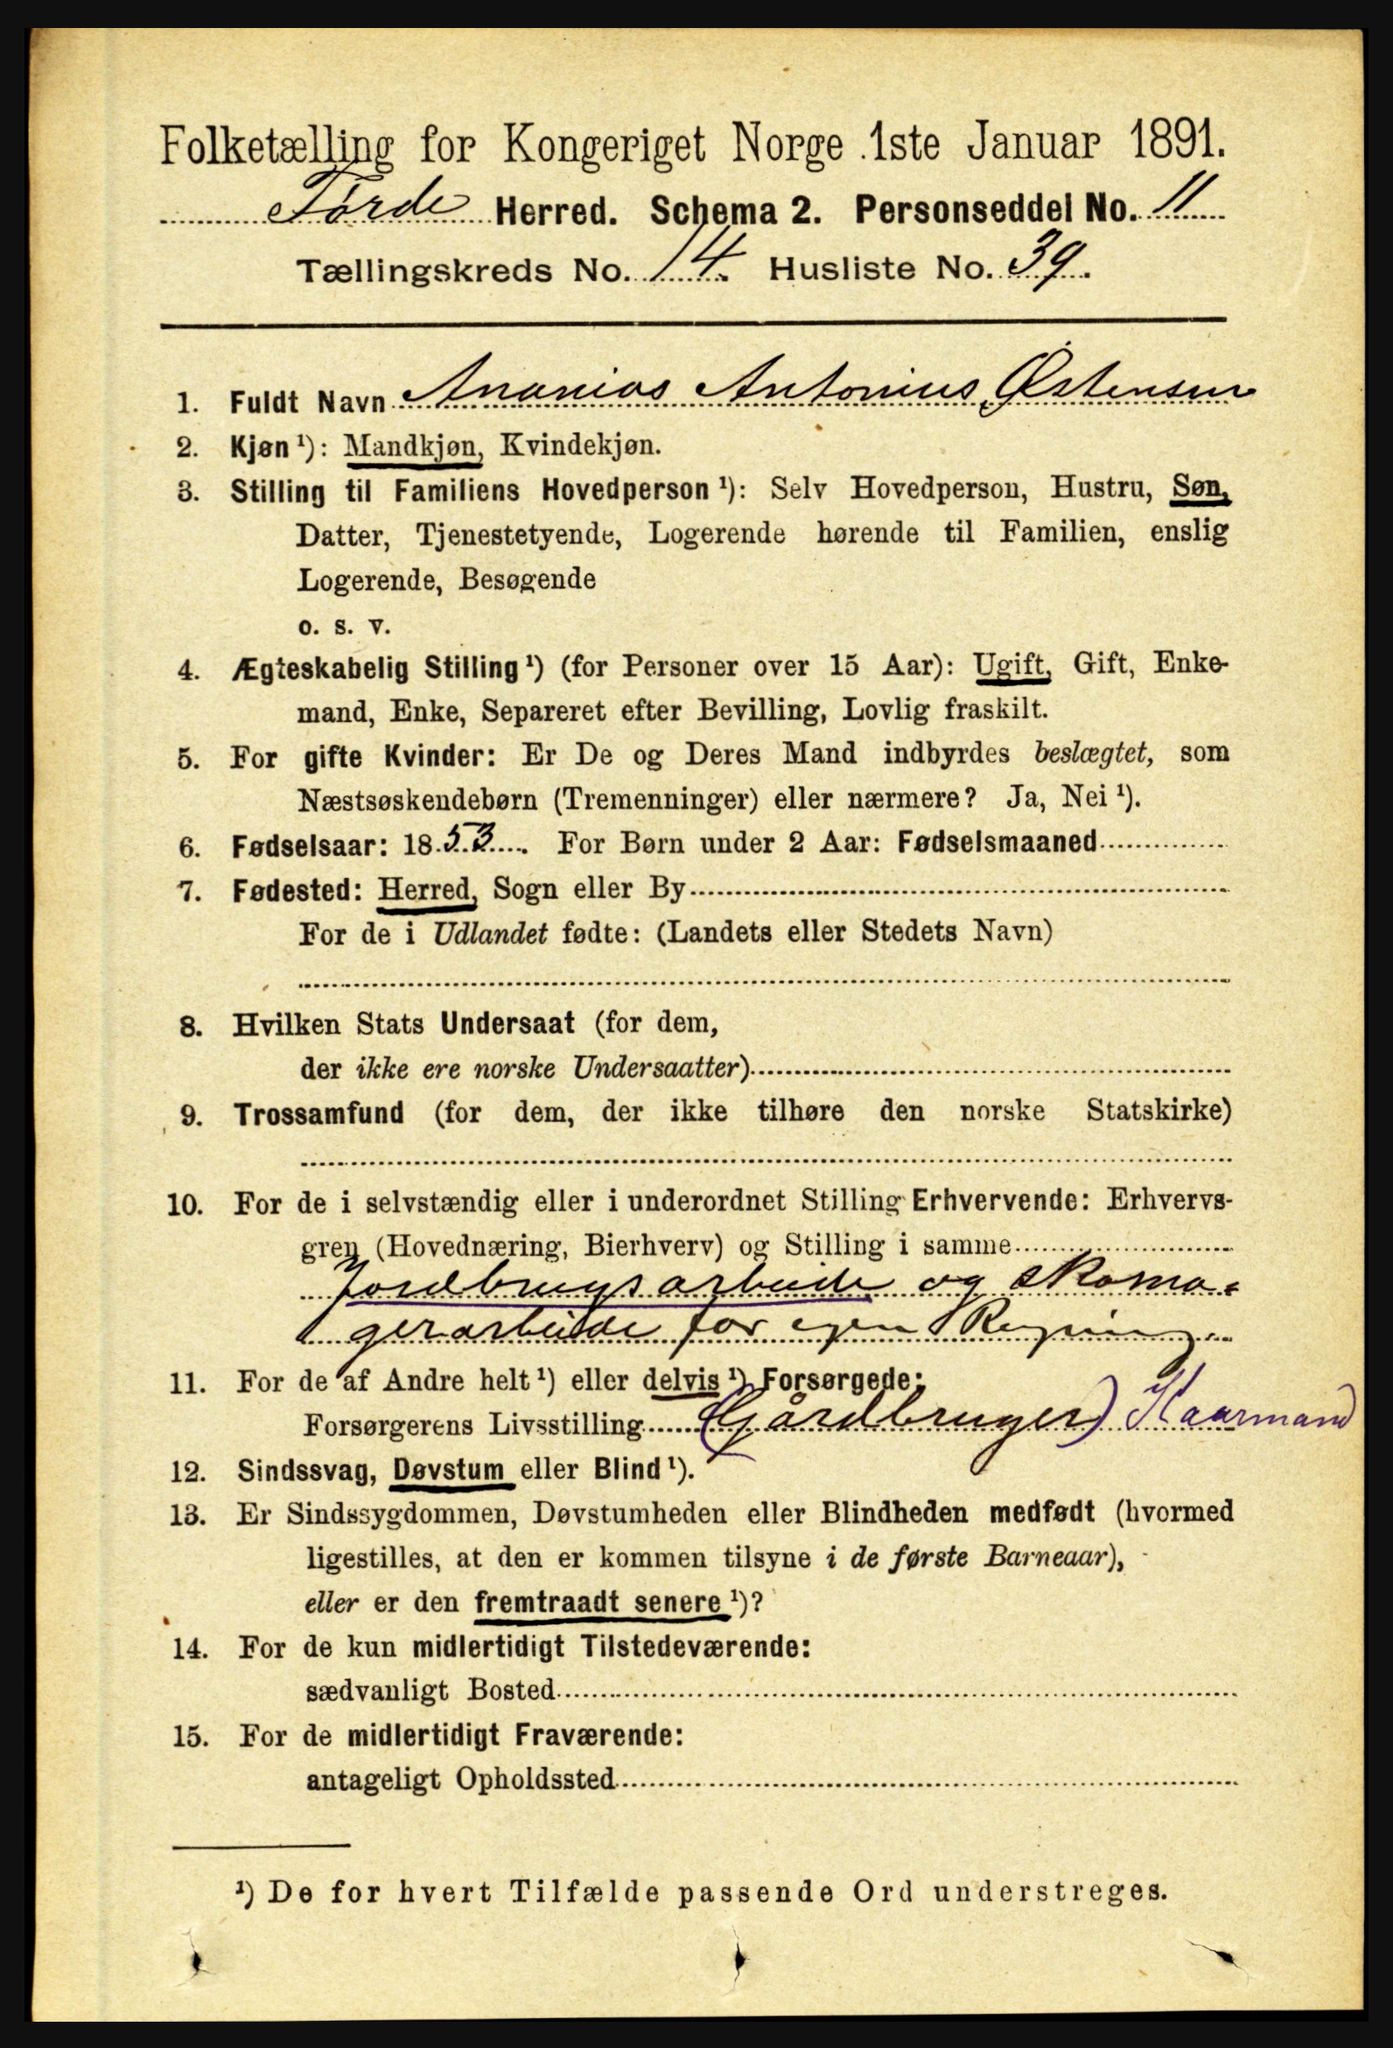 Folketælling for Kongeriget Norge 1ste Januar 1891.
Førde Herred. Schema 2. Personseddel No. 11
Tællingskreds No. 14. Husliste No. 39.
1. Fuldt Navn Ananias Antonius Østensen
2. Kjøn ¹): Mandkjøn, Kvindekjøn.
3. Stilling til Familiens Hovedperson ¹): Selv Hovedperson, Hustru, Søn,
Datter, Tjenestetyende, Logerende hørende til Familien, enslig
Logerende, Besøgende
o. s. v.
4. Ægteskabelig Stilling ¹) (for Personer over 15 Aar): Ugift, Gift, Enke-
mand, Enke, Separeret efter Bevilling, Lovlig fraskilt.
5. For gifte Kvinder: Er De og Deres Mand indbyrdes beslægtet, som
Næstsøskendebørn (Tremenninger) eller nærmere? Ja, Nei ¹).
6. Fødselsaar: 1853. For Børn under 2 Aar: Fødselsmaaned
7. Fødested: Herred, Sogn eller By
For de i Udlandet fødte: (Landets eller Stedets Navn)
8. Hvilken Stats Undersaat (for dem,
der ikke ere norske Undersaatter)
9. Trossamfund (for dem, der ikke tilhøre den norske Statskirke)
10. For de i selvstændig eller i underordnet Stilling Erhvervende: Erhvervs-
gren (Hovednæring, Bierhverv) og Stilling i samme
Jordbrugsarbeide og skoma-
gerarbeide for egen Regning.
11. For de af Andre helt ¹) eller delvis ¹) Forsørgede:
Forsørgerens Livsstilling (Gårdbruger) Kaarmand
12. Sindssvag, Døvstum eller Blind ¹).
13. Er Sindssygdommen, Døvstumheden eller Blindheden medfødt (hvormed
ligestilles, at den er kommen tilsyne i de første Barneaar),
eller er den fremtraadt senere ¹)?
14. For de kun midlertidigt Tilstedeværende:
sædvanligt Bosted
15. For de midlertidigt Fraværende:
antageligt Opholdssted
¹) De for hvert Tilfælde passende Ord understreges.